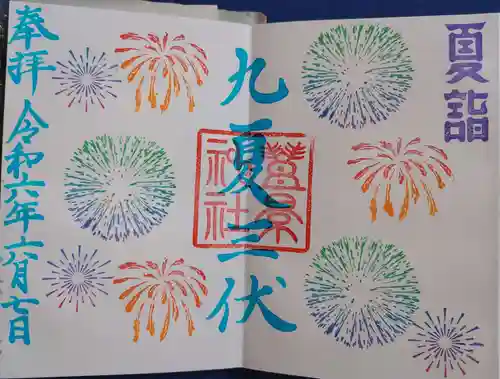 夏詣
九夏三伏
神社
奉拝
令和六年六月七日